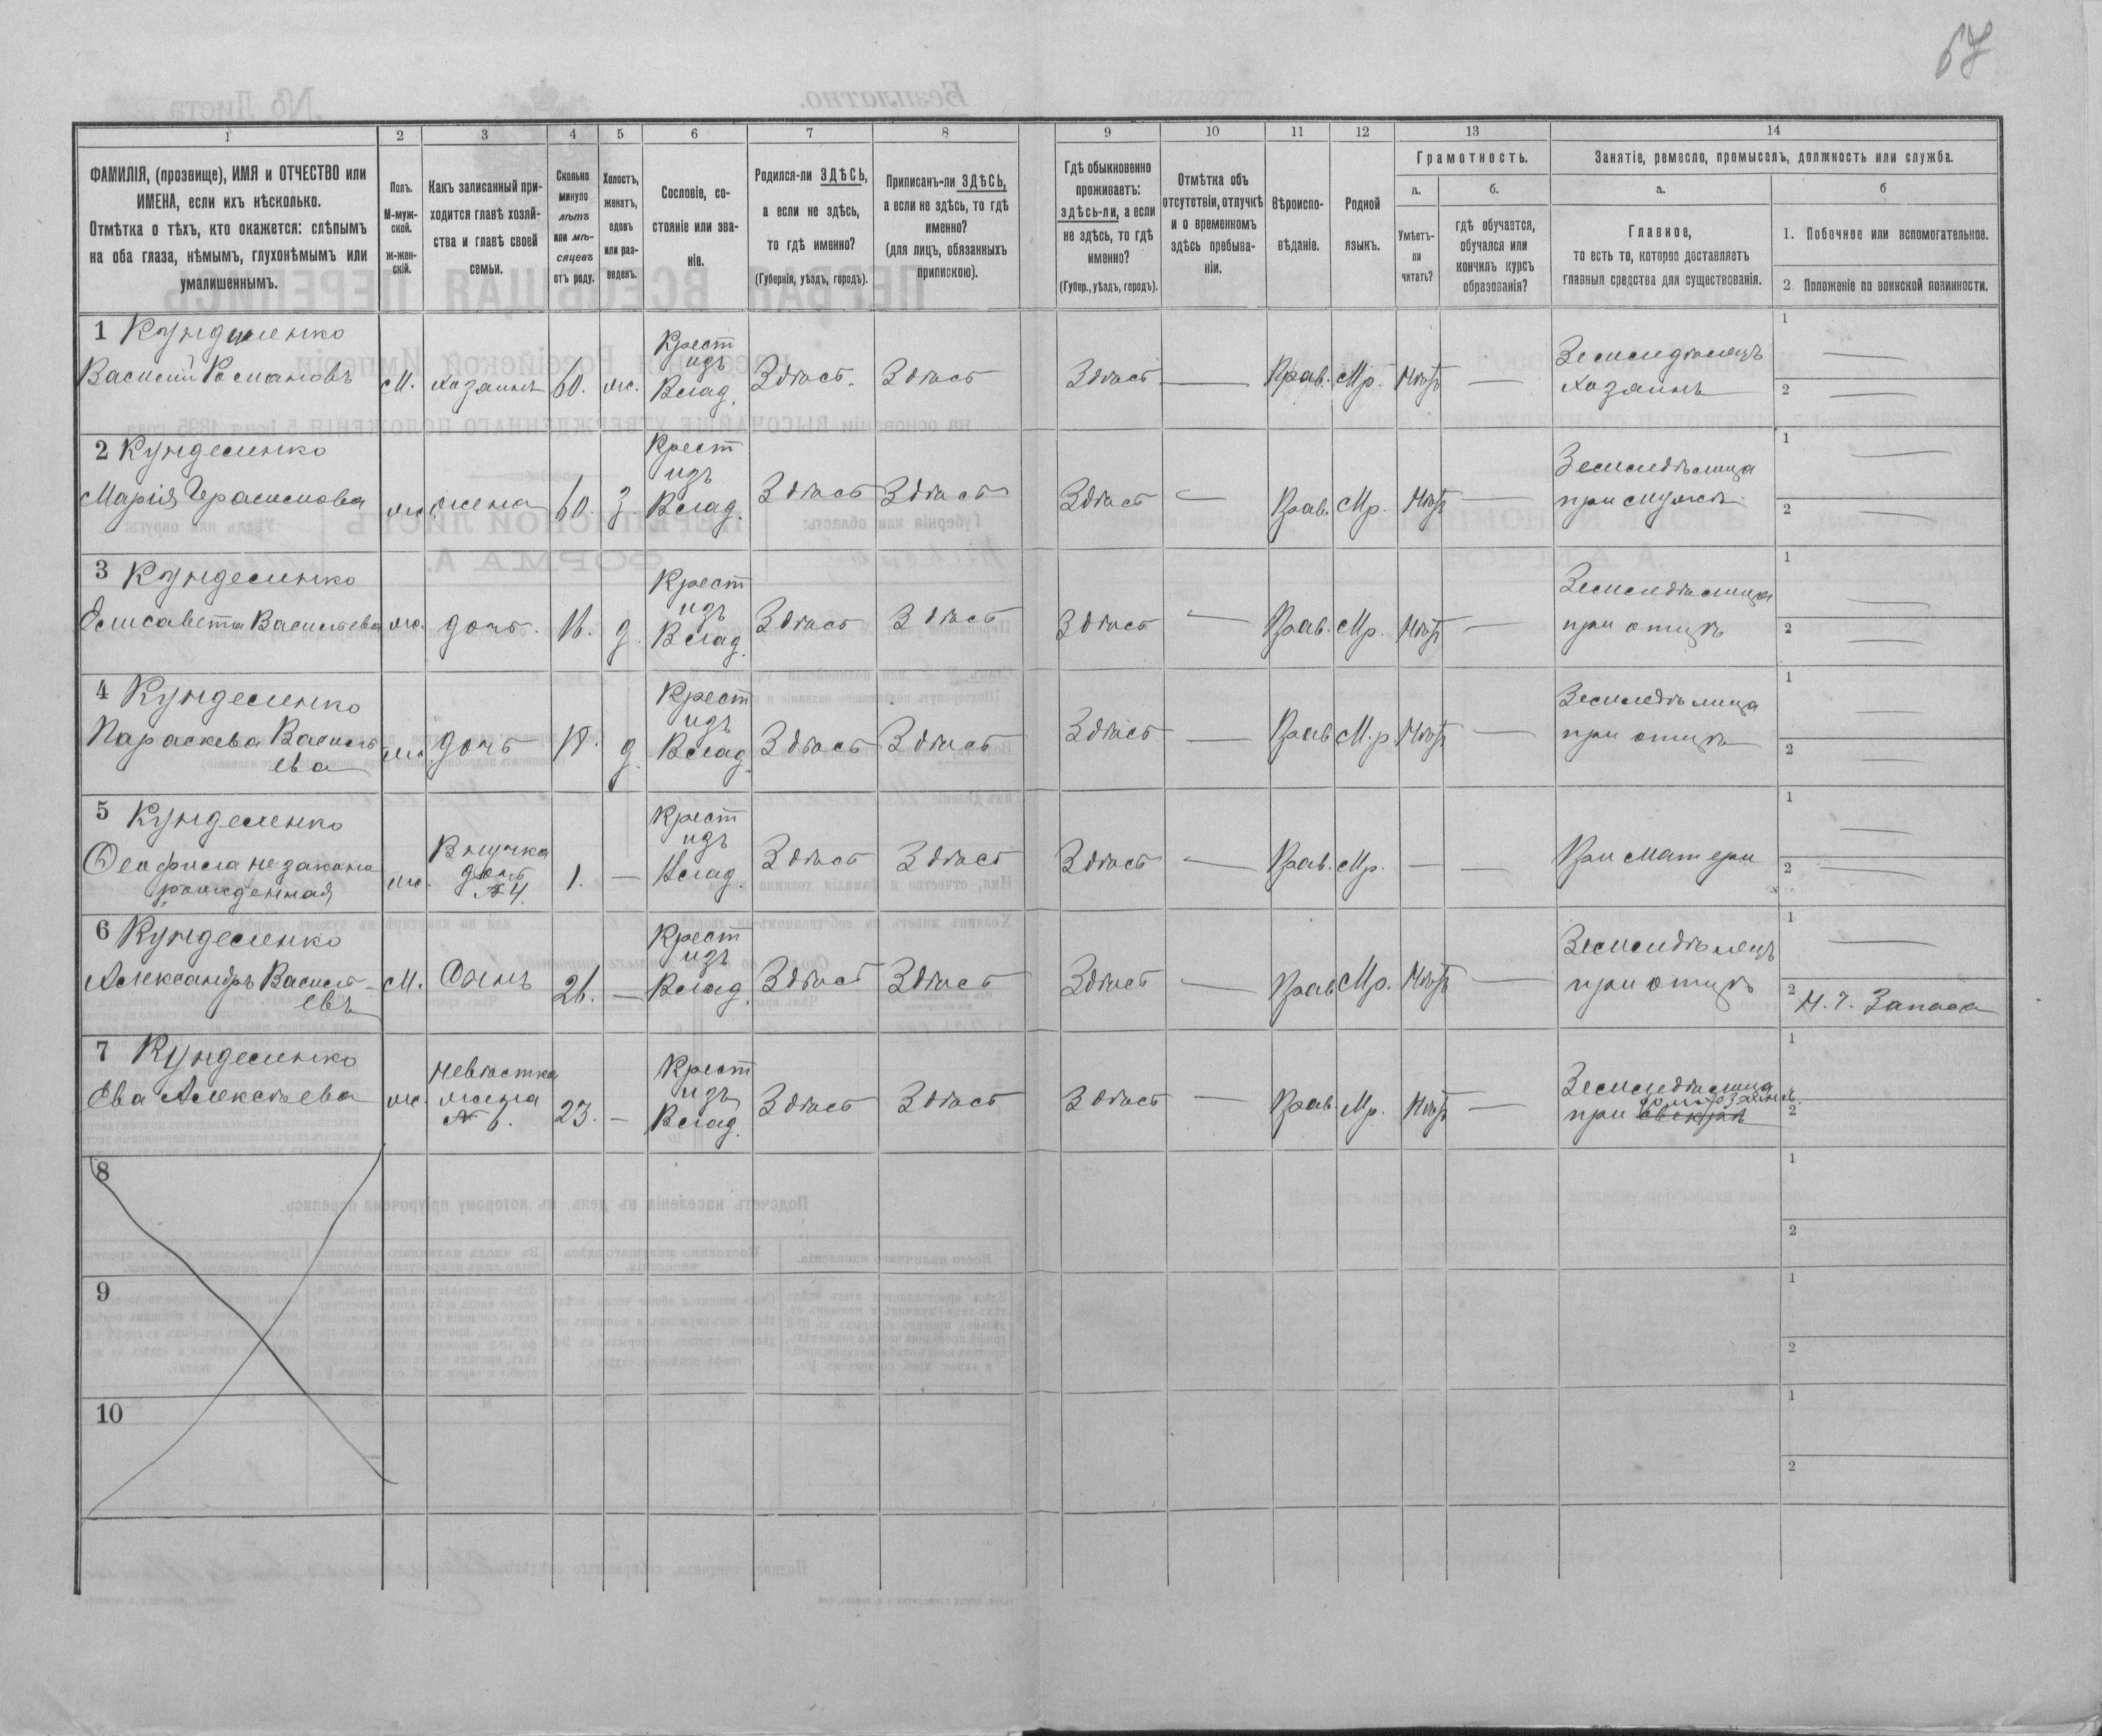 67
1 2 3 4 5 6 7 8 9 10 11 12 13 14
ФАМИЛІЯ, (прозвище), ИМЯ и ОТЧЕСТВО или
ИМЕНА, если ихъ нѣсколько.
Отмѣтка о тѣхъ, кто окажется: слѣпымъ
на оба глаза, нѣмымъ, глухонѣмымъ или
умалишеннымъ.
Полъ.
М-муж-
ской.
ж-жен-
скій.
Какъ записанный при-
ходится главѣ хозяй-
ства и главѣ своей
семьи.
Сколько
минуло
лѣтъ
или мѣ-
сяцевъ
отъ роду.
Холостъ,
женатъ,
вдовъ
или раз-
веденъ.
Сословіе, со-
стояніе или зва-
ніе.
Родился-ли ЗДѢСЬ,
а если не здѣсь,
то гдѣ именно?
(Губернія, уѣздъ, городъ).
Приписанъ-ли ЗДѢСЬ,
а если не здѣсь, то гдѣ
именно?
(для лицъ, обязанныхъ
припискою).
Гдѣ обыкновенно
проживаетъ:
здѣсь-ли, а если
не здѣсь, то гдѣ
именно?
(Губер., уѣздъ, городъ).
Отмѣтка объ
отсутствіи, отлучкѣ
и о временномъ
здѣсь пребыва-
ніи.
Вѣроиспо-
вѣданіе.
Родной
языкъ.
Грамотность.
а.
Умѣетъ-
ли
читать?
б.
гдѣ обучается,
обучался или
кончилъ курсъ
образованія?
Занятіе, ремесло, промыселъ, должность или служба.
а.
Главное,
то есть то, которое доставляетъ
главныя средства для существованія.
б
1. Побочное или вспомогательное.
2. Положеніе по воинской повинности.
1 Кунделенко
Василий Романовъ
м. хозаинъ 60. ж.
Крест
изъ
Влад.
Здѣсь. Здѣсь Здѣсь — Прав. Мр. Нѣтъ —
Земледѣлецъ
хозаинъ
1 —
2 —
2 Кунделенко
Марія Герасимова
ж. жена 60. З.
Крест
изъ
Влад.
Здѣсь Здѣсь Здѣсь — Прав. Мр. Нѣтъ —
Земледѣлица
при мужѣ
1 —
2 —
3 Кунделенко
Елисавета Васильева
ж. дочь. 16. д.
Крест
изъ
Влад.
Здѣсь Здѣсь Здѣсь — Прав. Мр. Нѣтъ —
Земледѣлица
при отцѣ
1 —
2 —
4 Кунделенко
Параскева Василь
ева
ж. дочь 18. д.
Крест
изъ
Влад.
Здѣсь Здѣсь Здѣсь — Прав М.р Нѣтъ —
Земледѣлица
при отцѣ
1 —
2 —
5 Кунделенко
Феофила незаконо
рожденная
ж.
Внучка
дочь
№ 4.
1. —
Крест
изъ
Влад.
Здѣсь Здѣсь Здѣсь — Прав. Мр. — —
При матери
1 —
2 —
6 Кунделенко
Александръ Василь-
евъ
м. Сынъ 26. —
Крест
изъ
Влад.
Здѣсь Здѣсь Здѣсь — Прав Мр. Нѣтъ —
Земледѣлецъ
при отцѣ
1 —
2 Н. Ч. Запаса
7 Кунделенко
Ева Алексѣева
ж.
невѣстка
жена
№ 6.
23. —
Крест
изъ
Влад.
Здѣсь Здѣсь Здѣсь — Прав Мр. Нѣтъ —
Земледѣлица
при свекрѣ
1
2
8
1
2
9
1
2
10
1
2